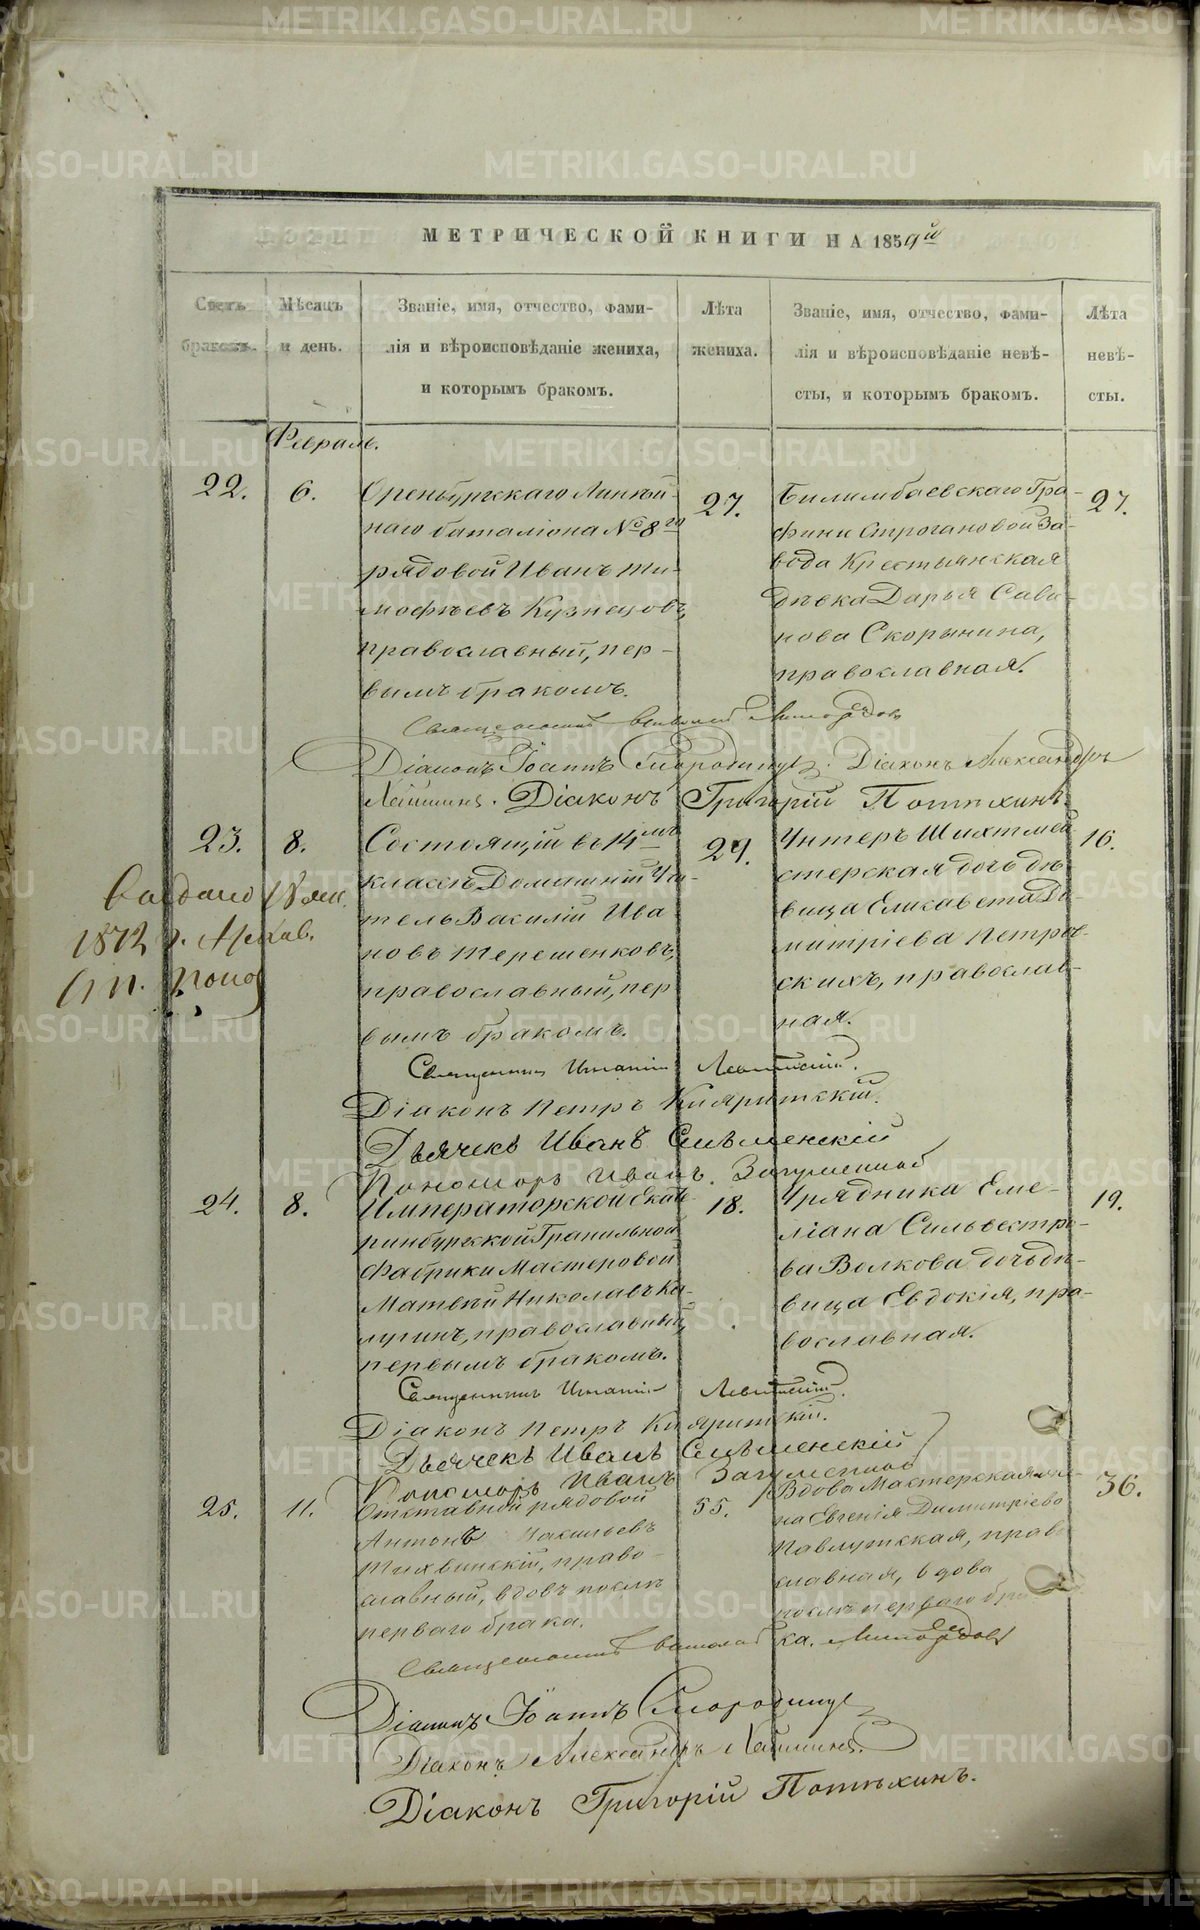 МЕТРИЧЕСКОЙ КНИГИ НА 1859й
Счетъ браковъ.
Мѣсяцъ и день.
Званіе, имя, отчество, фами-
лія и вѣроисповѣданіе жениха,
и которымъ бракомъ.
Лѣта
жениха.
Званіе, имя, отчество, фами-
лія и вѣроисповѣданіе невѣ-
сты, и которымъ бракомъ.
Лѣта
невѣ-
сты.
Февраль.
22.
6.
Оренбургскаго Линѣй-
наго баталіона № 8го
рядовой Иванъ Ти-
мофѣевъ Кузнецовъ,
православный, пер-
вымъ бракомъ.
27.
Билимбаевскаго Гра-
фини Строгановой За-
вода Крестьянская
дѣвка Дарья Сави-
нова Скорынина,
православная.
27.
Священникъ
Діаконъ Іоаннъ Смородинцевъ. Діаконъ Александръ
Хайминъ. Діаконъ Григорій Потѣхинъ.
23.
8.
Состоящій въ 14мъ
классѣ Домашній Учи-
тель Василій Ива-
новъ Терешенковъ,
православный, пер
вымъ бракомъ.
24.
Унтеръ Шихтмей
стерская дочь дѣ-
вица Елисавета Ди-
митріева Петров-
скихъ, православ-
ная.
16.
Выдано
1872 г.
Священникъ Игнатій Левитскій.
Діаконъ Петръ Кипритскій.
Дьячекъ Иванъ Смѣленскій
Пономарь Иванъ Загуменный
24.
8.
Императорской Екате-
ринбургской Гранильной
Фабрики Мастеровой
Матвѣй Николаевъ Ка-
лугинъ, православный,
первымъ бракомъ.
18.
Урядника Еме-
ліана Сильвестро-
ва Волкова дочь дѣ-
вица Евдокія, пра-
вославная.
19.
Священникъ Игнатій Левитскій.
Діаконъ Петръ Кипритскій.
Дьячекъ Иванъ Смѣленскій
Пономарь Иванъ Загуменный
25.
11.
Отставной рядовой
Антонъ Васильевъ
Тихвинскій, право-
славный, вдовъ послѣ
перваго брака.
55.
Вдова Мастерская же-
на Евгенія Димитріева
Павлутская, право
славная, вдова
послѣ перваго бра
ка.
36.
Священникъ
Діаконъ Іоаннъ Смородинцевъ
Діаконъ Александръ Хайминъ.
Діаконъ Григорій Потѣхинъ.
METRIKI.GASO-URAL.RU